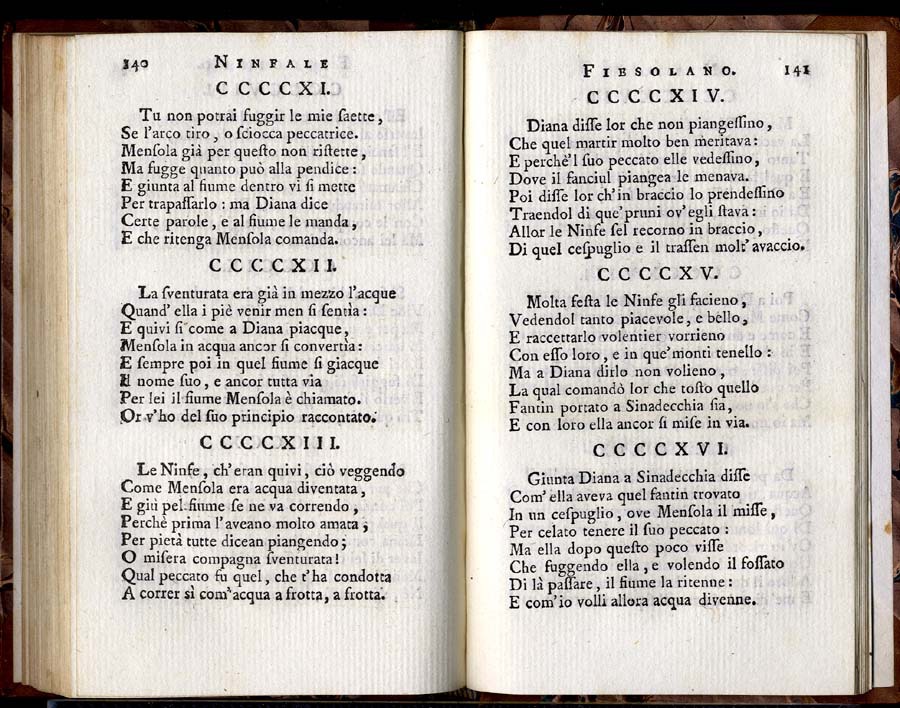 140 NINFALE
CCCCXI.
Tu non potrai ſuggir le mie ſaette,
Se l'arco tiro, o ſciocca peccatrice.
Menſola già per queſto non riſtette,
Ma fugge quanto può alla pendice:
E giunta al fiume dentro vi ſi mette
Per trapaſſarlo: ma Diana dice
Certe parole, e al fiume le manda,
E che ritenga Menſola comanda.
CCCCXII.
La ſventurata era già in mezzo l'acque
Quand' ella i piè venir men ſi ſentia:
E quivi ſi come a Diana piacque,
Menſola in acqua ancor ſi convertia:
E ſempre poi in quel fiume ſi giacque
Il nome ſuo, e ancor tutta via
Per lei il fiume Menſola è chiamato.
Or v'ho del ſuo principio raccontato.
CCCCXIII.
Le Ninfe, ch'eran quivi, ciò veggendo
Come Menſola era acqua diventata,
E giù pel fiume ſe ne va correndo,
Perchè prima l'aveano molto amata;
Per pietà tutte dicean piangendo;
O miſera compagna ſventurata!
Qual peccato fu quel, che t'ha condotta
A correr sì com' acqua a frotta, a frotta.
FIESOLANO. 141
CCCCXIV.
Diana diſſe lor che non piangeſſino,
Che quel martir molto ben meritava:
E perchè'l ſuo peccato elle vedeſſino,
Dove il fanciul piangea le menava.
Poi diſſe lor ch'in braccio lo prendeſſino
Traendol di que' pruni ov' egli ſtava:
Allor le Ninfe ſel recorno in braccio,
Di quel ceſpuglio e il traſſen molt' avaccio.
CCCCXV.
Molta feſta le Ninfe gli facieno,
Vedendol tanto piacevole, e bello,
E raccettarlo volentier vorrieno
Con eſſo loro, e in que' monti tenello:
Ma a Diana dirlo non volieno,
La qual comandò lor che toſto quello
Fantin portato a Sinadecchia ſia,
E con loro ella ancor ſi miſe in via.
CCCCXVI.
Giunta Diana a Sinadecchia diſſe
Com' ella aveva quel fantin trovato
In un ceſpuglio, ove Menſola il miſſe,
Per celato tenere il ſuo peccato:
Ma ella dopo queſto poco viſſe
Che fuggendo ella, e volendo il foſſato
Di là paſſare, il fiume la ritenne:
E com' io volli allora acqua divenne.